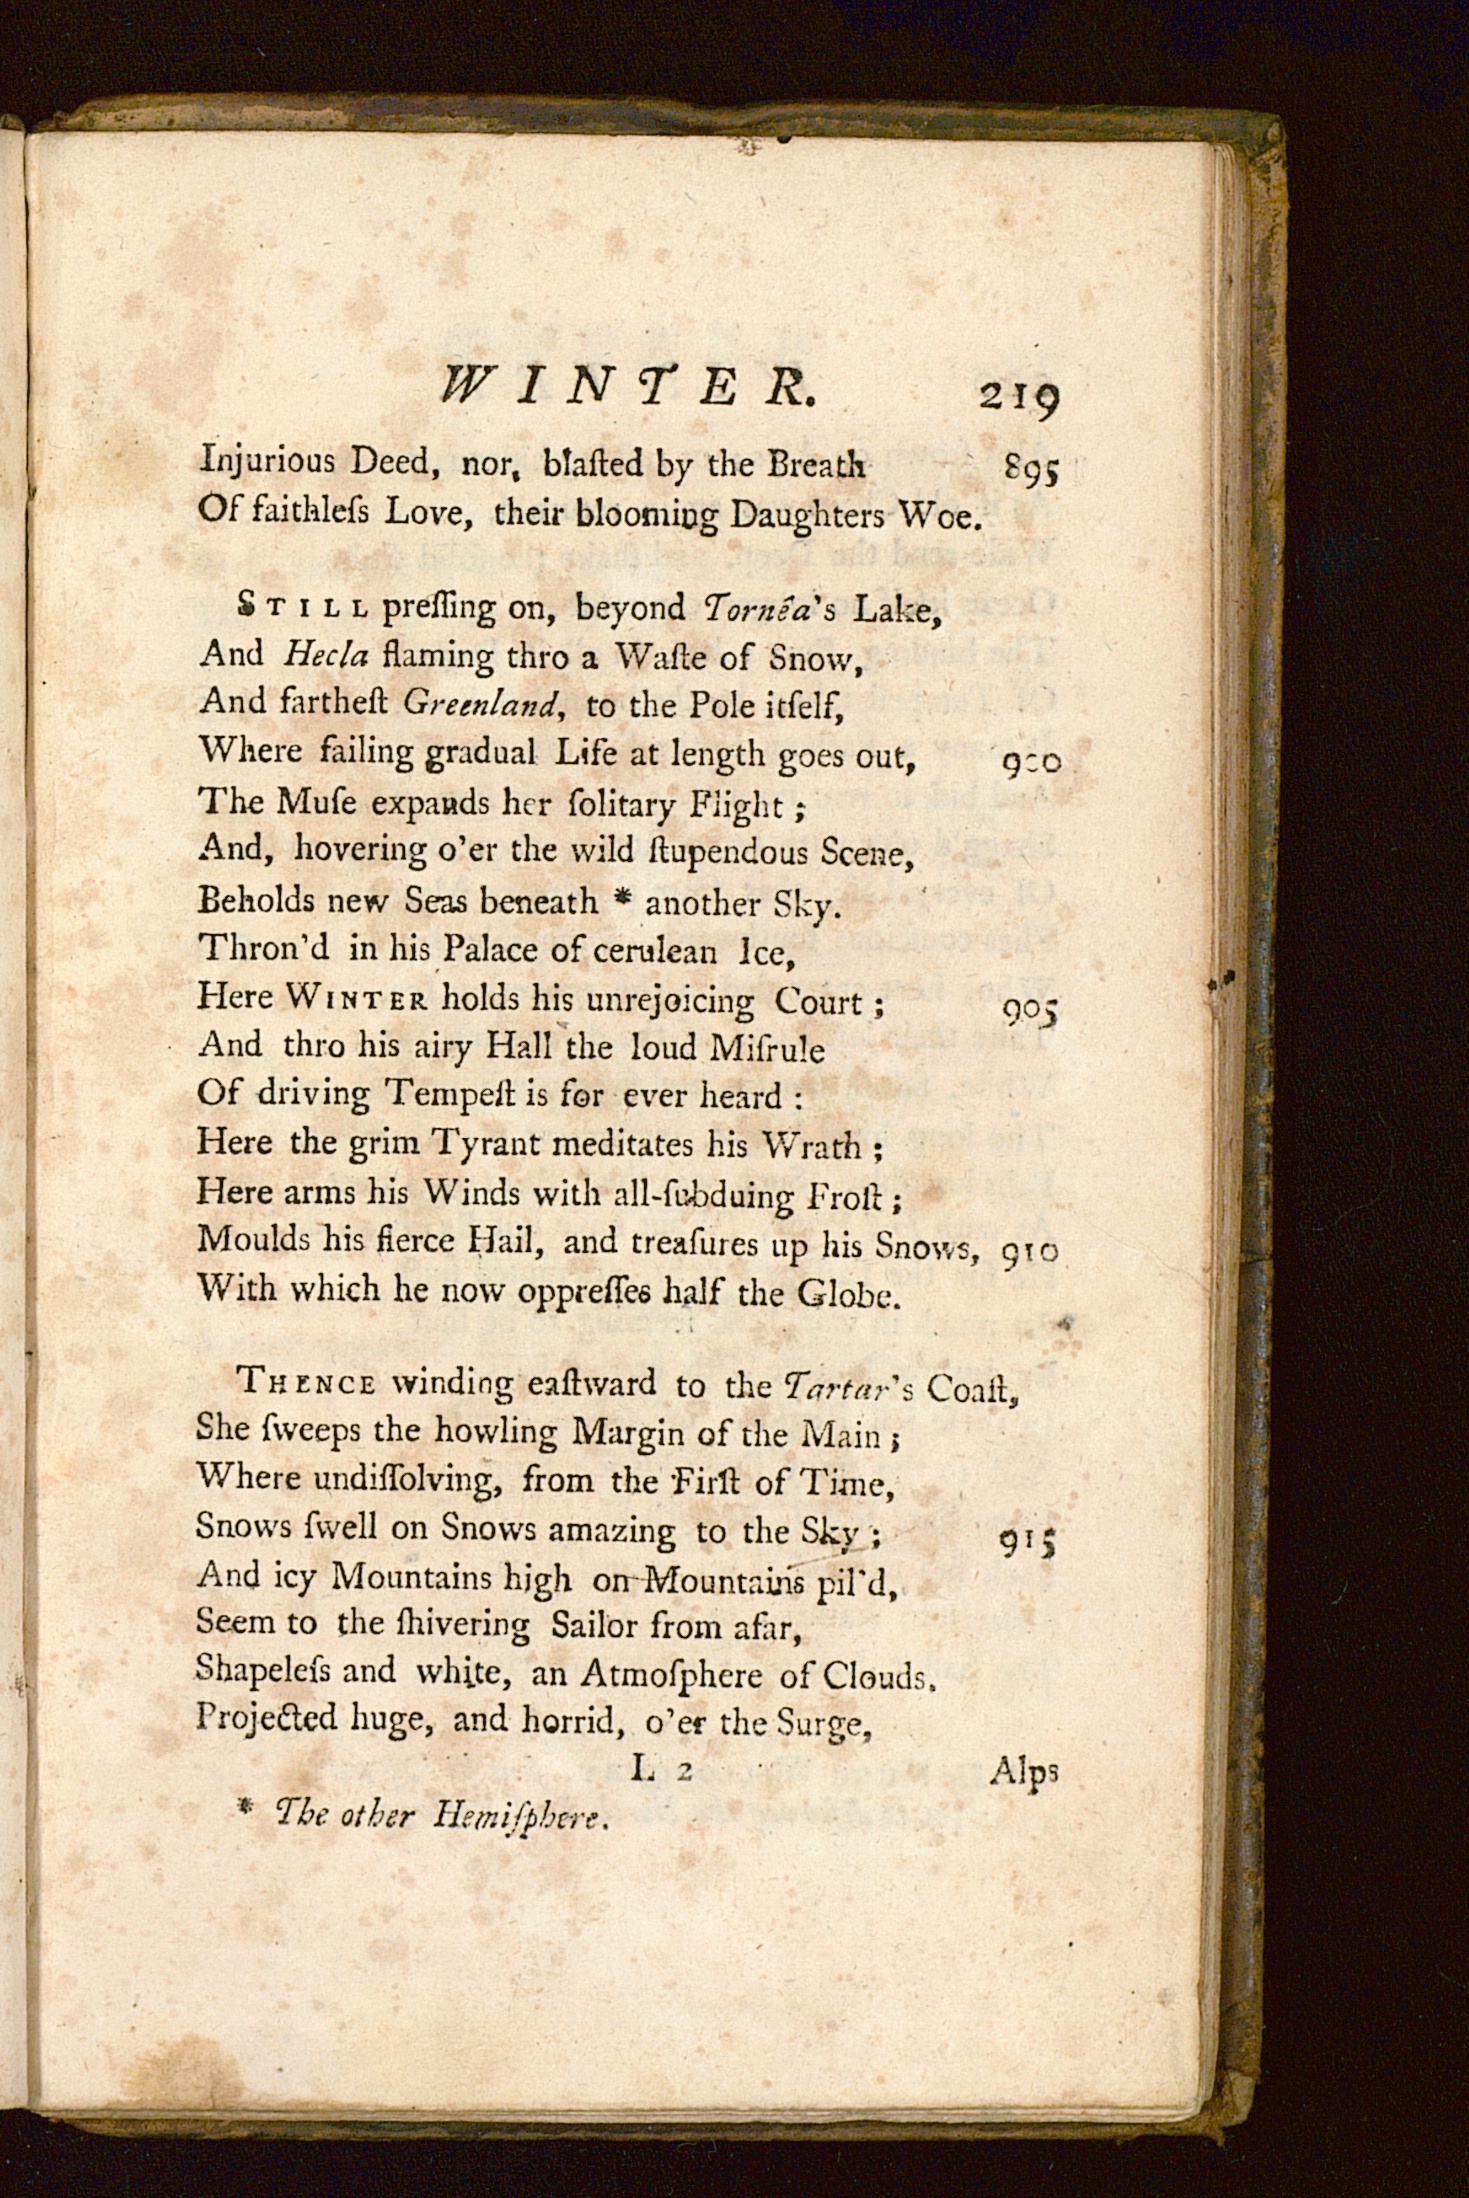 WINTER. 219
Injurious Deed, nor, blaſted by the Breath 895
Of faithleſs Love, their blooming Daughters Woe.
STILL preſſing on, beyond Tornêa's Lake,
And Hecla flaming thro a Waſte of Snow,
And fartheſt Greenland, to the Pole itſelf,
Where failing gradual Life at length goes out, 900
The Muſe expands her ſolitary Flight;
And, hovering o'er the wild ſtupendous Scene,
Beholds new Seas beneath * another Sky.
Thron'd in his Palace of cerulean Ice,
Here WINTER holds his unrejoicing Court; 905
And thro his airy Hall the loud Miſrule
Of driving Tempeſt is for ever heard:
Here the grim Tyrant meditates his Wrath;
Here arms his Winds with all-ſubduing Froſt;
Moulds his fierce Hail, and treaſures up his Snows, 910
With which he now oppreſſes half the Globe.
THENCE winding eaſtward to the Tartar's Coaſt,
She ſweeps the howling Margin of the Main;
Where undiſſolving, from the Firſt of Time,
Snows ſwell on Snows amazing to the Sky; 915
And icy Mountains high on Mountains pil'd,
Seem to the ſhivering Sailor from afar,
Shapeleſs and white, an Atmoſphere of Clouds.
Projected huge, and horrid, o'er the Surge,
L 2 Alps
* The other Hemiſphere.